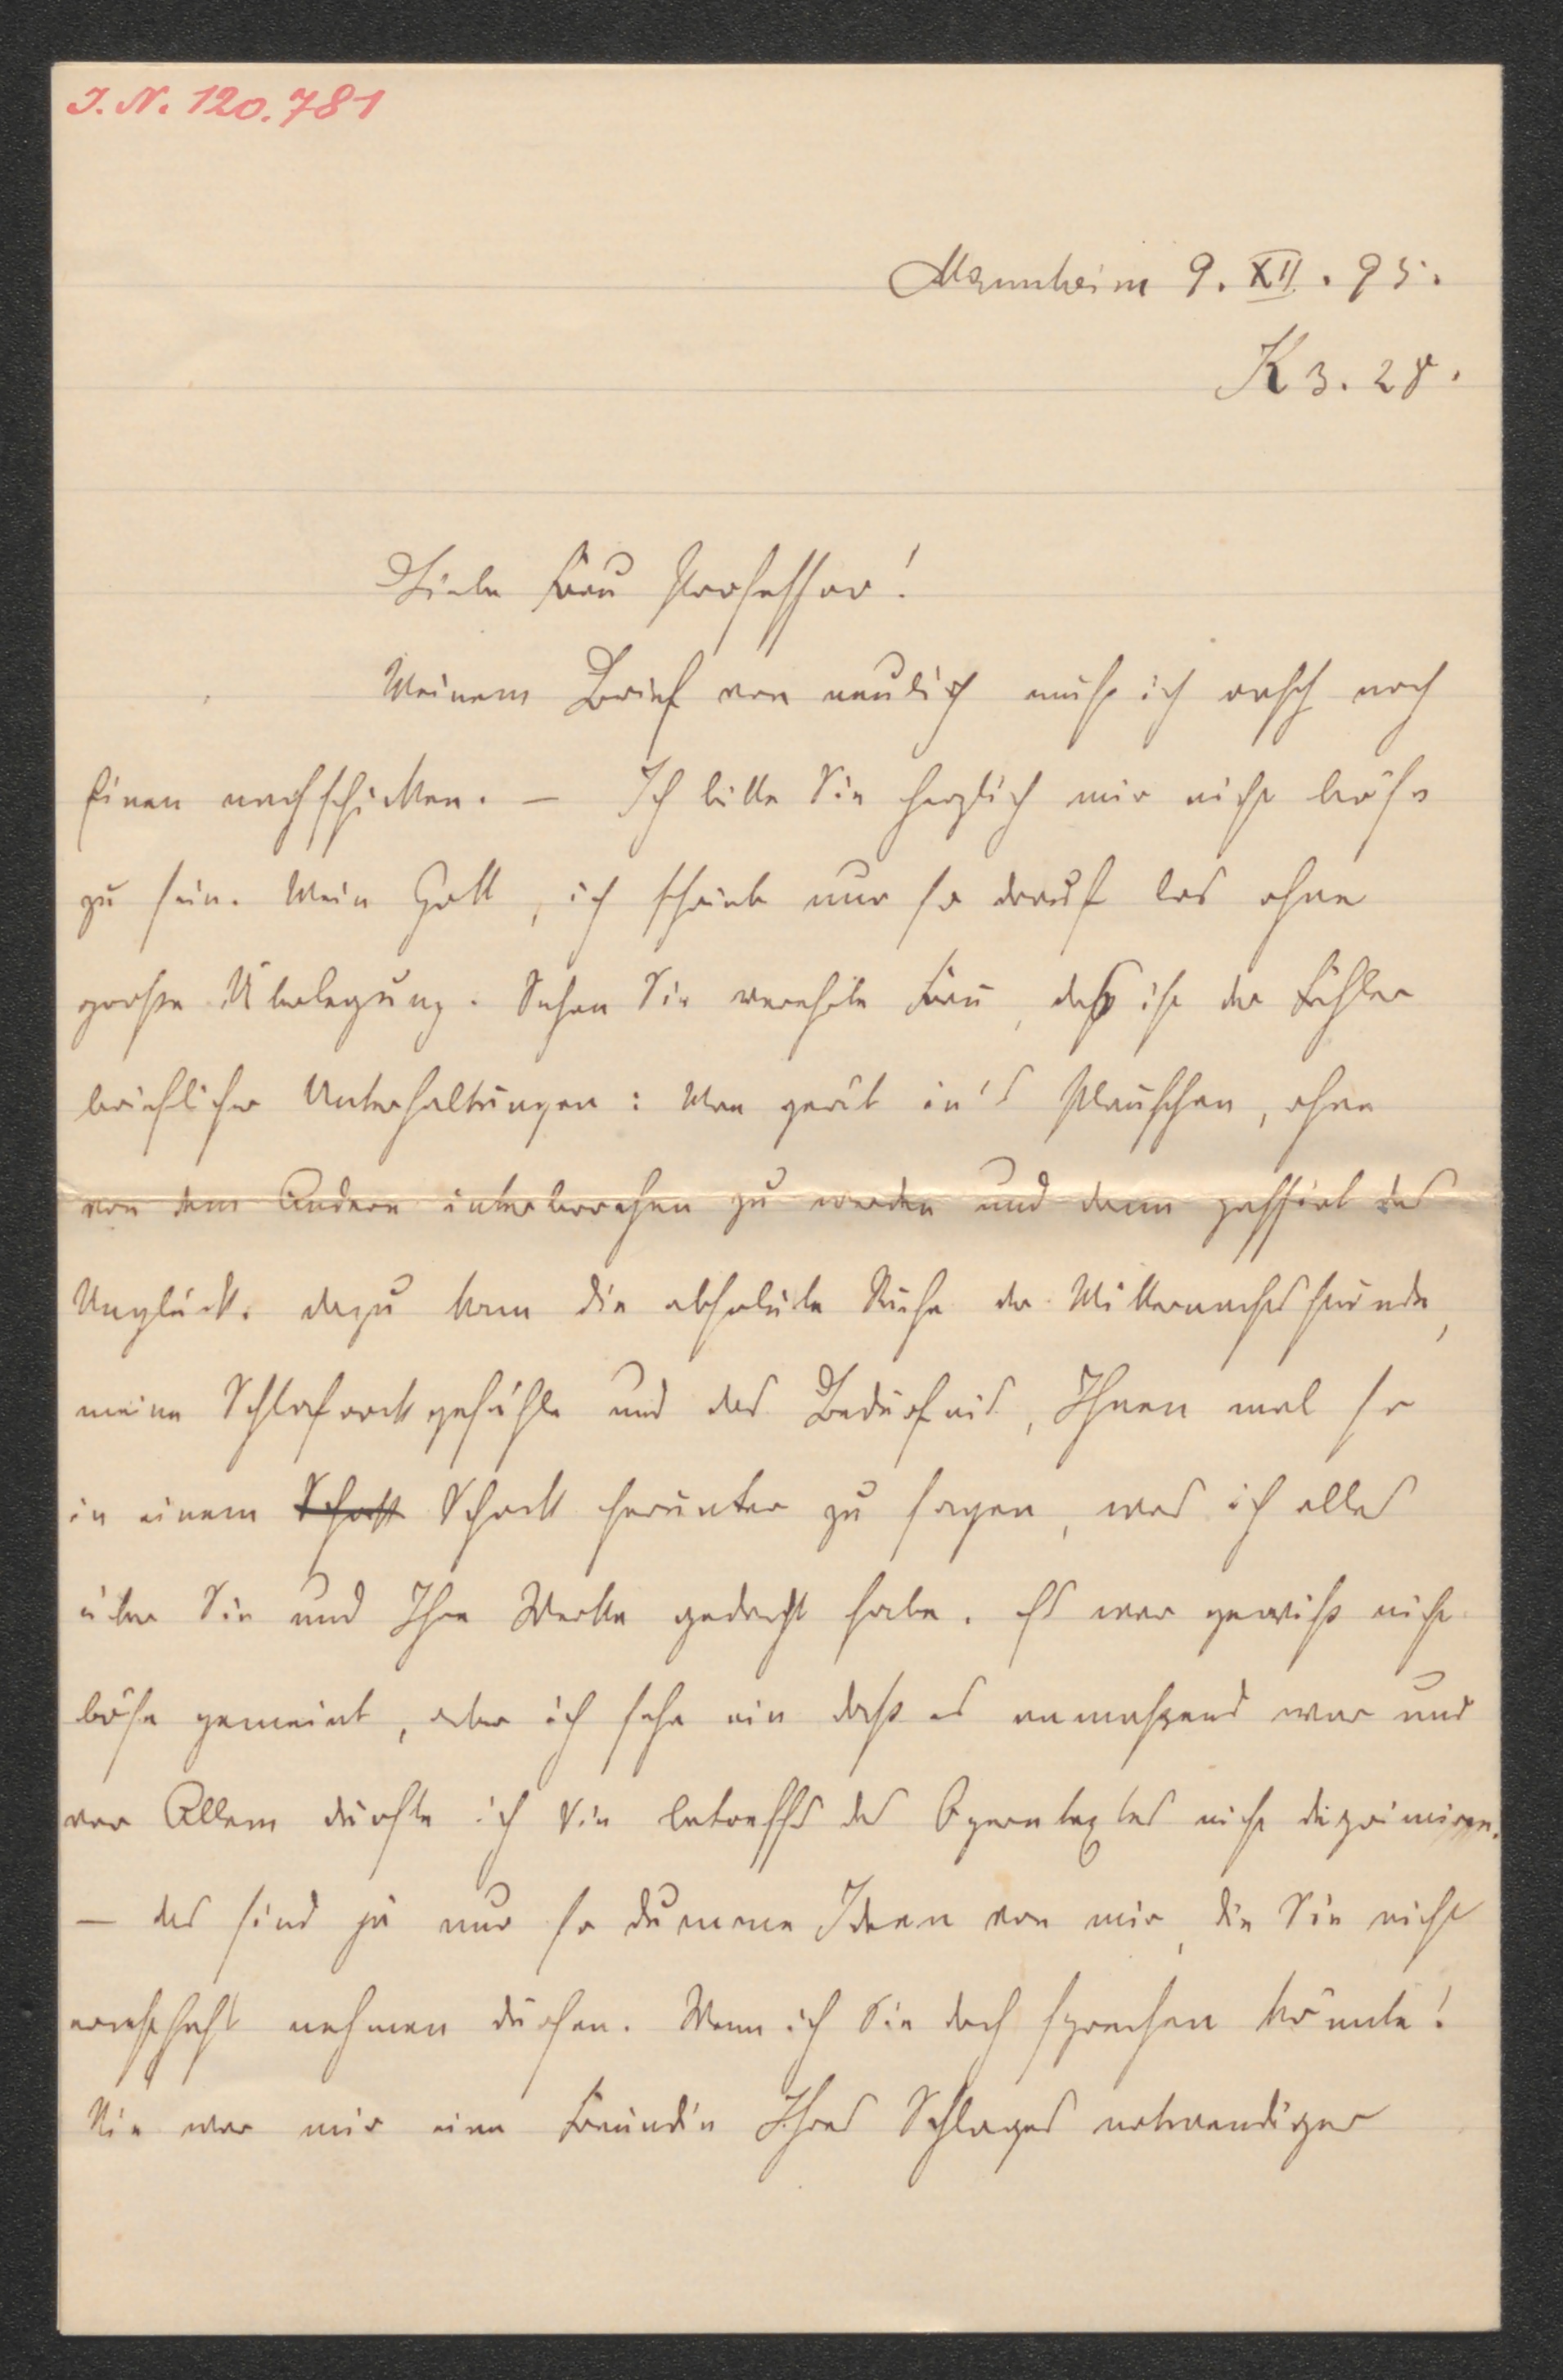 J. N. 120.781
Mannheim 9. XII. 95.
K 3. 28.
Liebe Frau Professor!
Meinem Brief von neulich muß ich rasch noch
Einen nachschicken. — Ich bitte Sie herzlich mir nicht böse
zu sein. Mein Gott, ich schreib nur so drauf los ohne
große Überlegung. Sehen Sie verehrte Frau, daß ist der Fehler
brieflicher Unterhaltungen: Man gerät in's Plauschen, ohne
von dem Andern unterbrochen zu werden und dann passirt das
Unglück. dazu kam die absolute Ruhe der Mitternachtsstunde,
meine Schlafrockgefühle und das Bedürfnis, Ihnen mal so
in einem Schock herunter zu sagen, was ich alles
über Sie und Ihre Werke gedacht habe. Es war gewiß nicht
böse gemeint, aber ich sehe ein daß es anmaßend war und
vor Allem durfte ich Sie betreffs des Operntextes nicht deprimiren.
— das sind ja nur so dumme Ideen von mir, die Sie nicht
ernsthaft nehmen dürfen. Wenn ich Sie doch sprechen könnte!
Nie war mir eine Freundin Ihres Schlages notwendiger